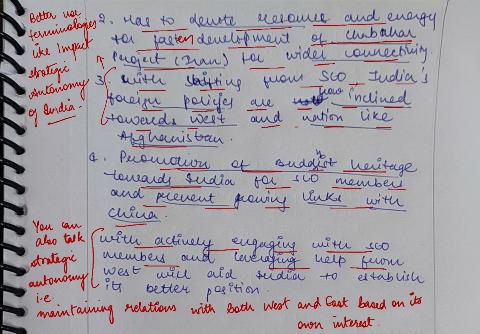 Better use
terminologies
like impact
strategic
Autonomy
of India.
2. Has to denote resource and energy
for fasten development of Chabahar
Project (Iran) for wider connectivity
3. with shifting from SCO India's
foreign policies are now inclined
towards west and nation like
Afghanistan.
4. Promotion of Buddhist heritage
towards India for SCO members
and prevent growing links with
China.
with actively engaging with SCO
members and leveraging help from
west will aid India to establish
its better position.
You can
also talk
strategic
autonomy
i.e.
maintaining relations with both West and East based on its
own interest.